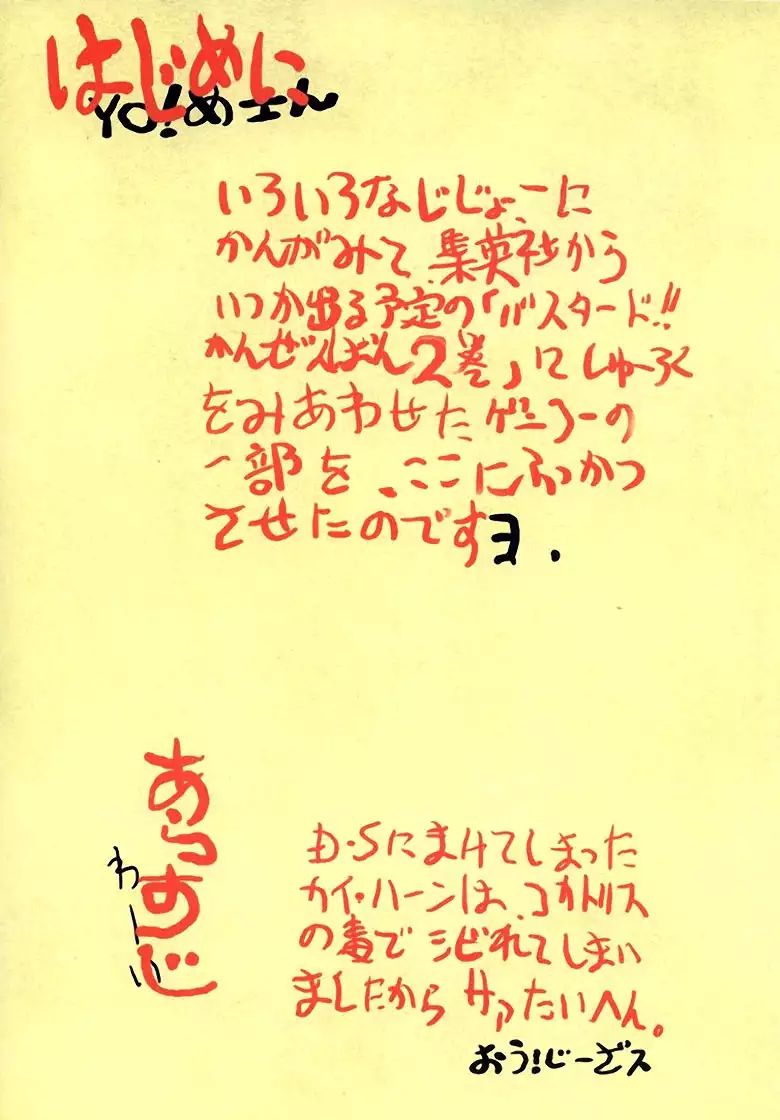 はじめに、
YO!めさん
いろいろなじじょーに
かんがみて、集英社から
いつか出る予定の「バスタード!!
かんぜんばん2巻」にしゅーろく
をみあわせたゲンコーの
一部を、ここにふっかつ
させたのですヨ.
あらすじ
わーい
D・Sにまけてしまった
カイ・ハーンは、コカトリス
の毒でシビれてしまい
ましたからサァたいへん。
おう!じーざス